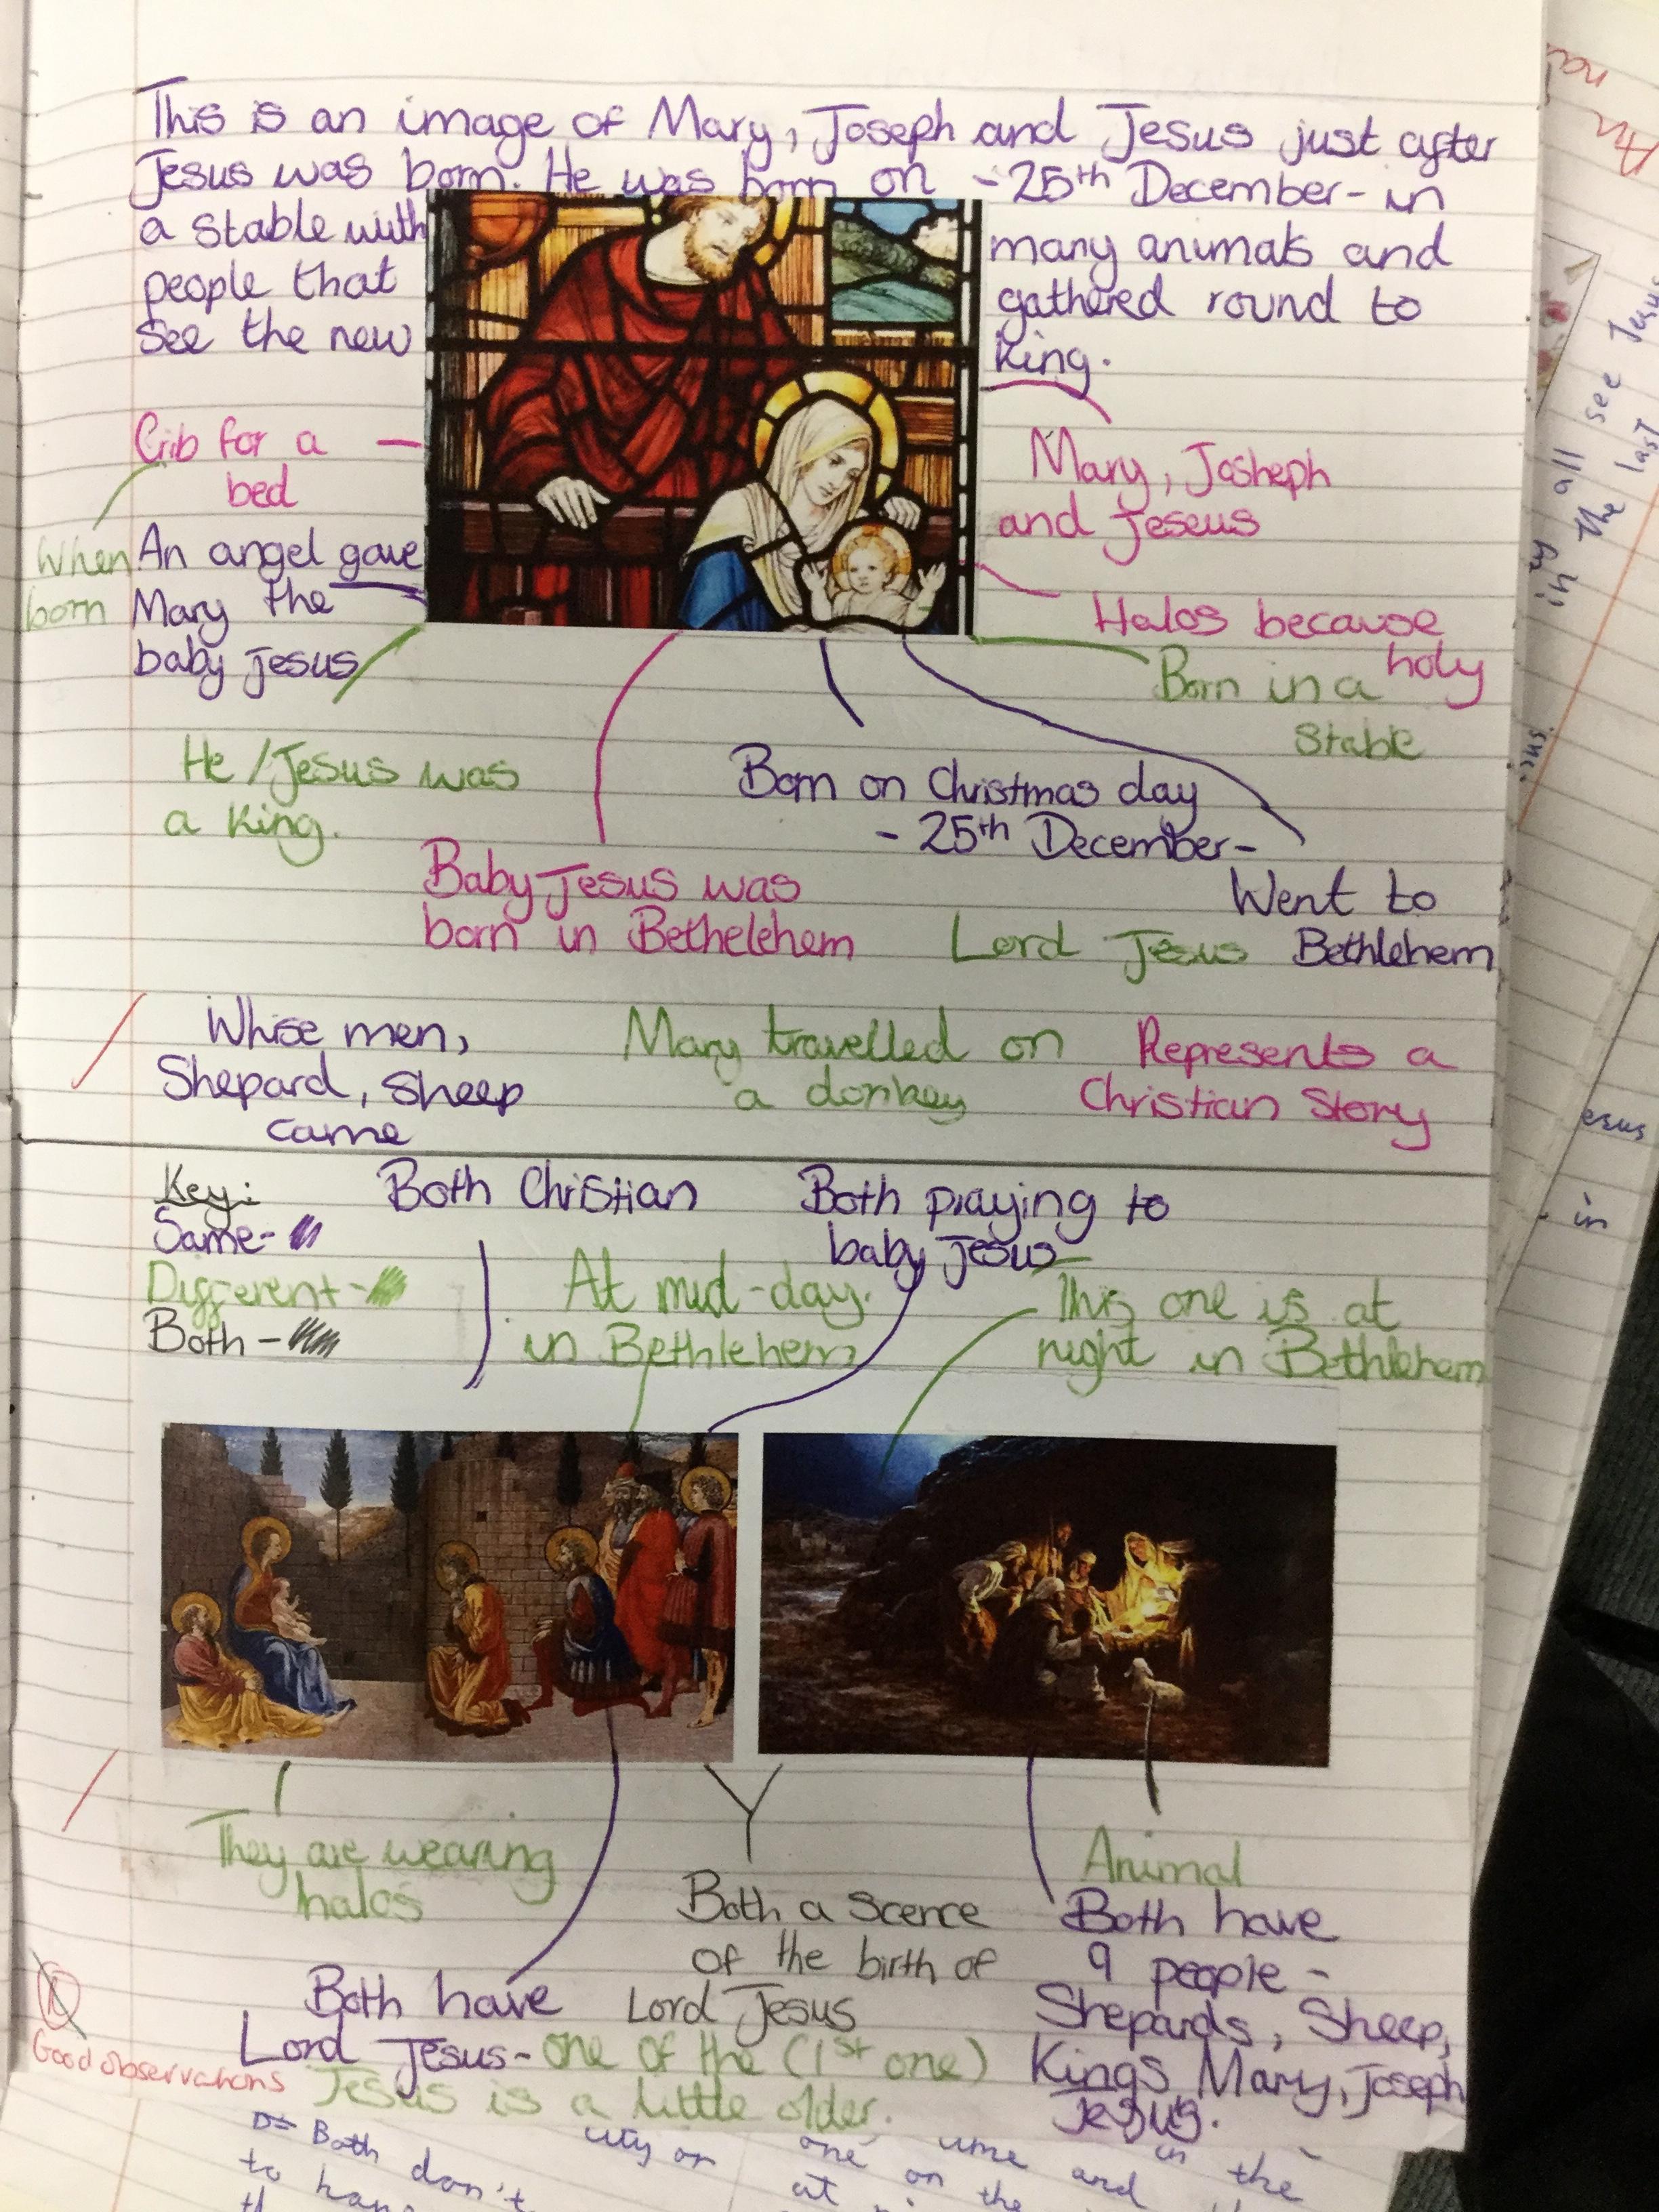 This is an image of Mary, Joseph and Jesus just after
Jesus was born. He was born on - 25th December - in
a stable with many animals and
people that gathered round to
see the new king.
Crib for a
bed
Mary, Josheph
and Jeseus
When
born
An angel gave
Mary the
baby Jesus
Halos because
holy
Born in a
stable
He / Jesus was
a king.
Born on Christmas day
- 25th December -
Baby Jesus was
born in Bethelehem
Went to
Bethlehem
Lord Jesus
Whise men,
Shepard, sheep
came
Mary travelled on
a donkey
Represents a
Christian Story
Key:
Same -
Different -
Both -
Both Christian
Both praying to
baby Jesus
At mid-day.
in Bethlehem
This one is at
night in Bethlehem
They are wearing
halos
Animal
Both a scence
of the birth of
Lord Jesus
Both have
9 people -
Shepards, Sheep,
Kings Mary, Joseph
Jesus.
Both have
Lord Jesus - one of the (1st one)
Jesus is a little older.
Good observations
all see Jesus
in the last
esus
in
Both don't
city or
one
time and
in the
to
at
on the